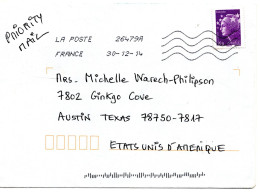 PRIORITY
MAIL
LA POSTE 26479A
FRANCE 30-12-14
MRS. Michelle Warech-Philipson
7802 Ginkgo Cove
AUSTIN TEXAS 78750-7817
ETATS UNIS D'AMERIQUE